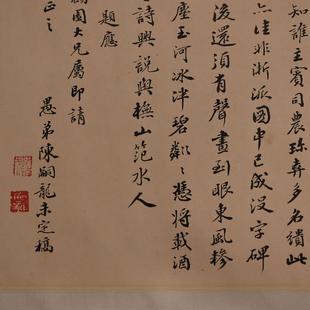 知誰主賓司農珎弆多名繢此
亦佳非浙派圖中已成没字碑
後還須有聲畫到眼東風糝
塵玉河冰泮碧粼〻憑將載酒
詩興說與橅山范水人
題應
大兄屬即請
正之
愚弟陳嗣龍未定稿